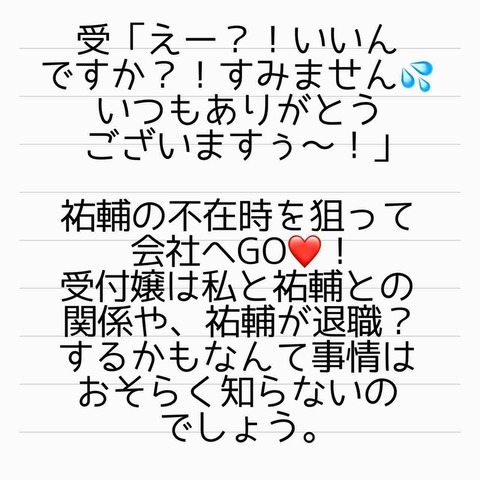 受「えー？！いいん
ですか？！すみません💦
いつもありがとう
ございますぅ〜！」
祐輔の不在時を狙って
会社へGO❤️！
受付嬢は私と祐輔との
関係や、祐輔が退職？
するかもなんて事情は
おそらく知らないの
でしょう。